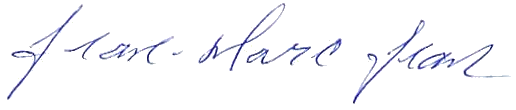 Jean-Marc Jean